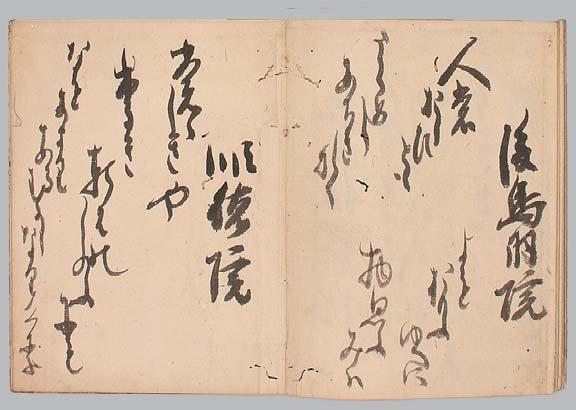 後鳥羽院
人も
おしひとも
うらめし
あちきなく
よを
おもふ
ゆへに
物思ふ
みは
順徳院
百しきや
ふるき
軒はの
しのふにも
なを
あまり
ある
むかし
なりけり